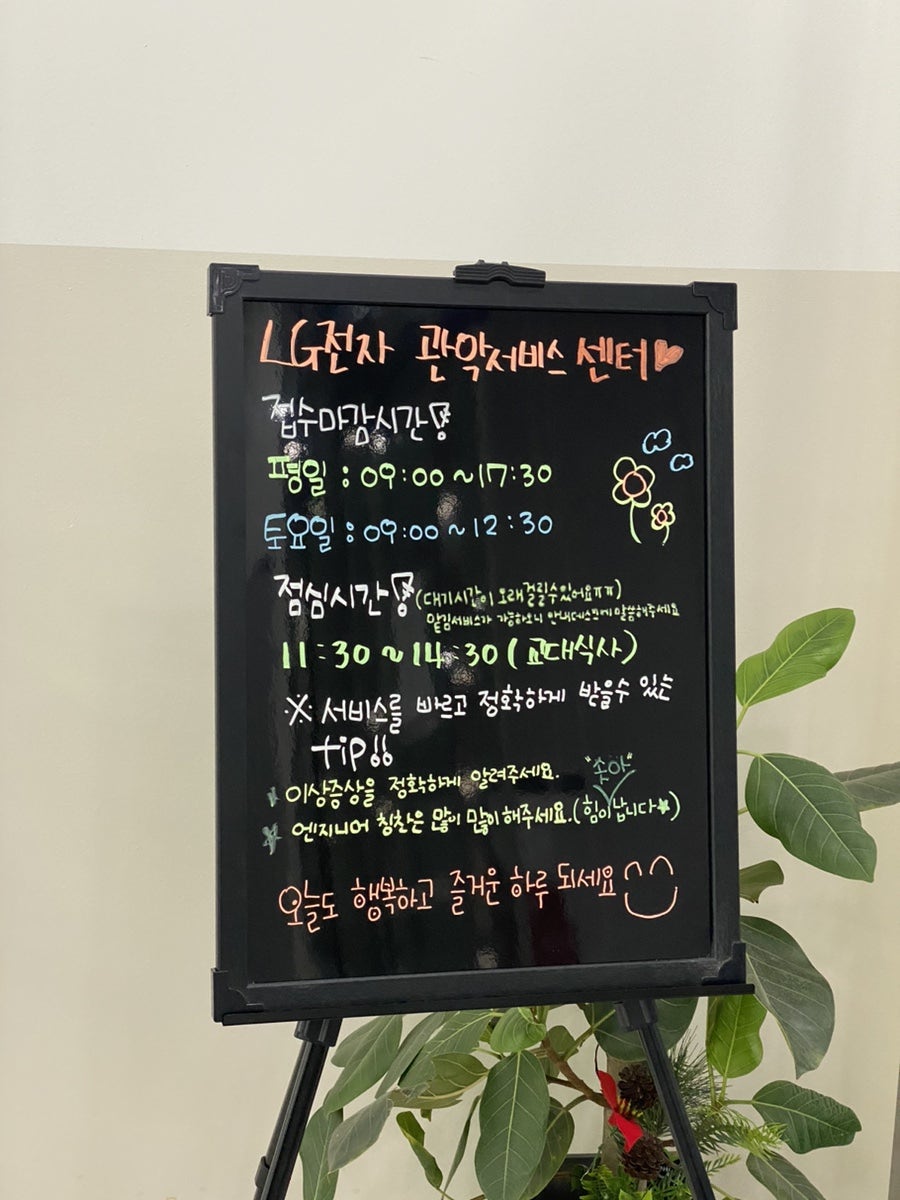 LG전자 관악서비스 센터♥
접수마감시간!
평일 : 09:00 ~ 17:30
토요일 : 09:00 ~ 12:30
점심시간! (대기시간이 오래걸릴수있어요ㅠㅠ)
맡김서비스가 가능하오니 안내데스크에 말씀해주세요
11:30 ~ 14:30 (교대식사)
※ 서비스를 빠르고 정확하게 받을수 있는
tip!!
★ 이상증상을 정확하게 알려주세요.
"솟아"
★ 엔지니어 칭찬은 많이 많이 해주세요. (힘이 납니다★)
오늘도 행복하고 즐거운 하루 되세요